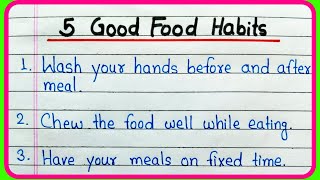 5 Good Food Habits
1. Wash your hands before and after
meal.
2. Chew the food well while eating.
3. Have your meals on fixed time.